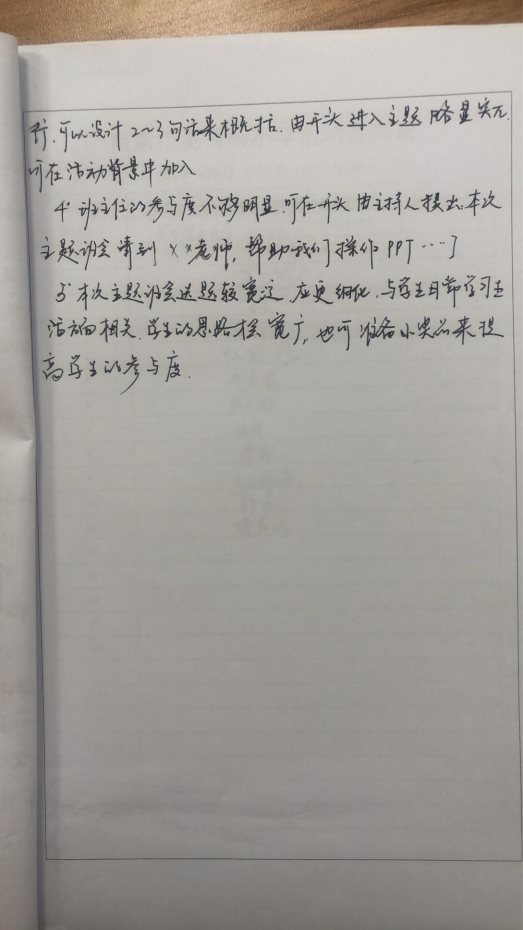 示。可以设计2~3句话来概括。由开头进入主题略显突兀
可在活动背景中加入
4' 班主任的参与度不够明显,可在开头由主持人提出"本次
主题班会请到××老师,帮助我们操作PPT……"
5' 本次主题班会选题较宽泛,应更细化,与学生日常学习生
活方面相关,学生的思路才会宽广,也可准备小奖品来提
高学生的参与度.